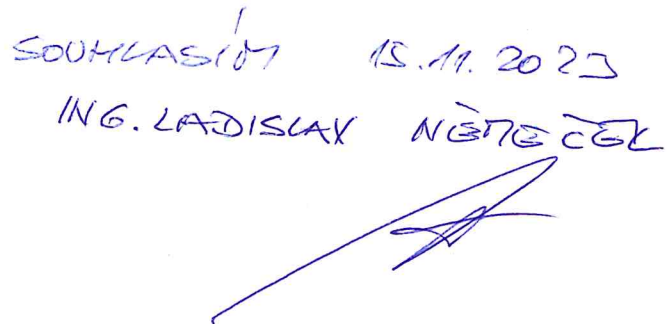 SOUHLASÍM 15.11.2023
ING. LADISLAV NĚMEČEK